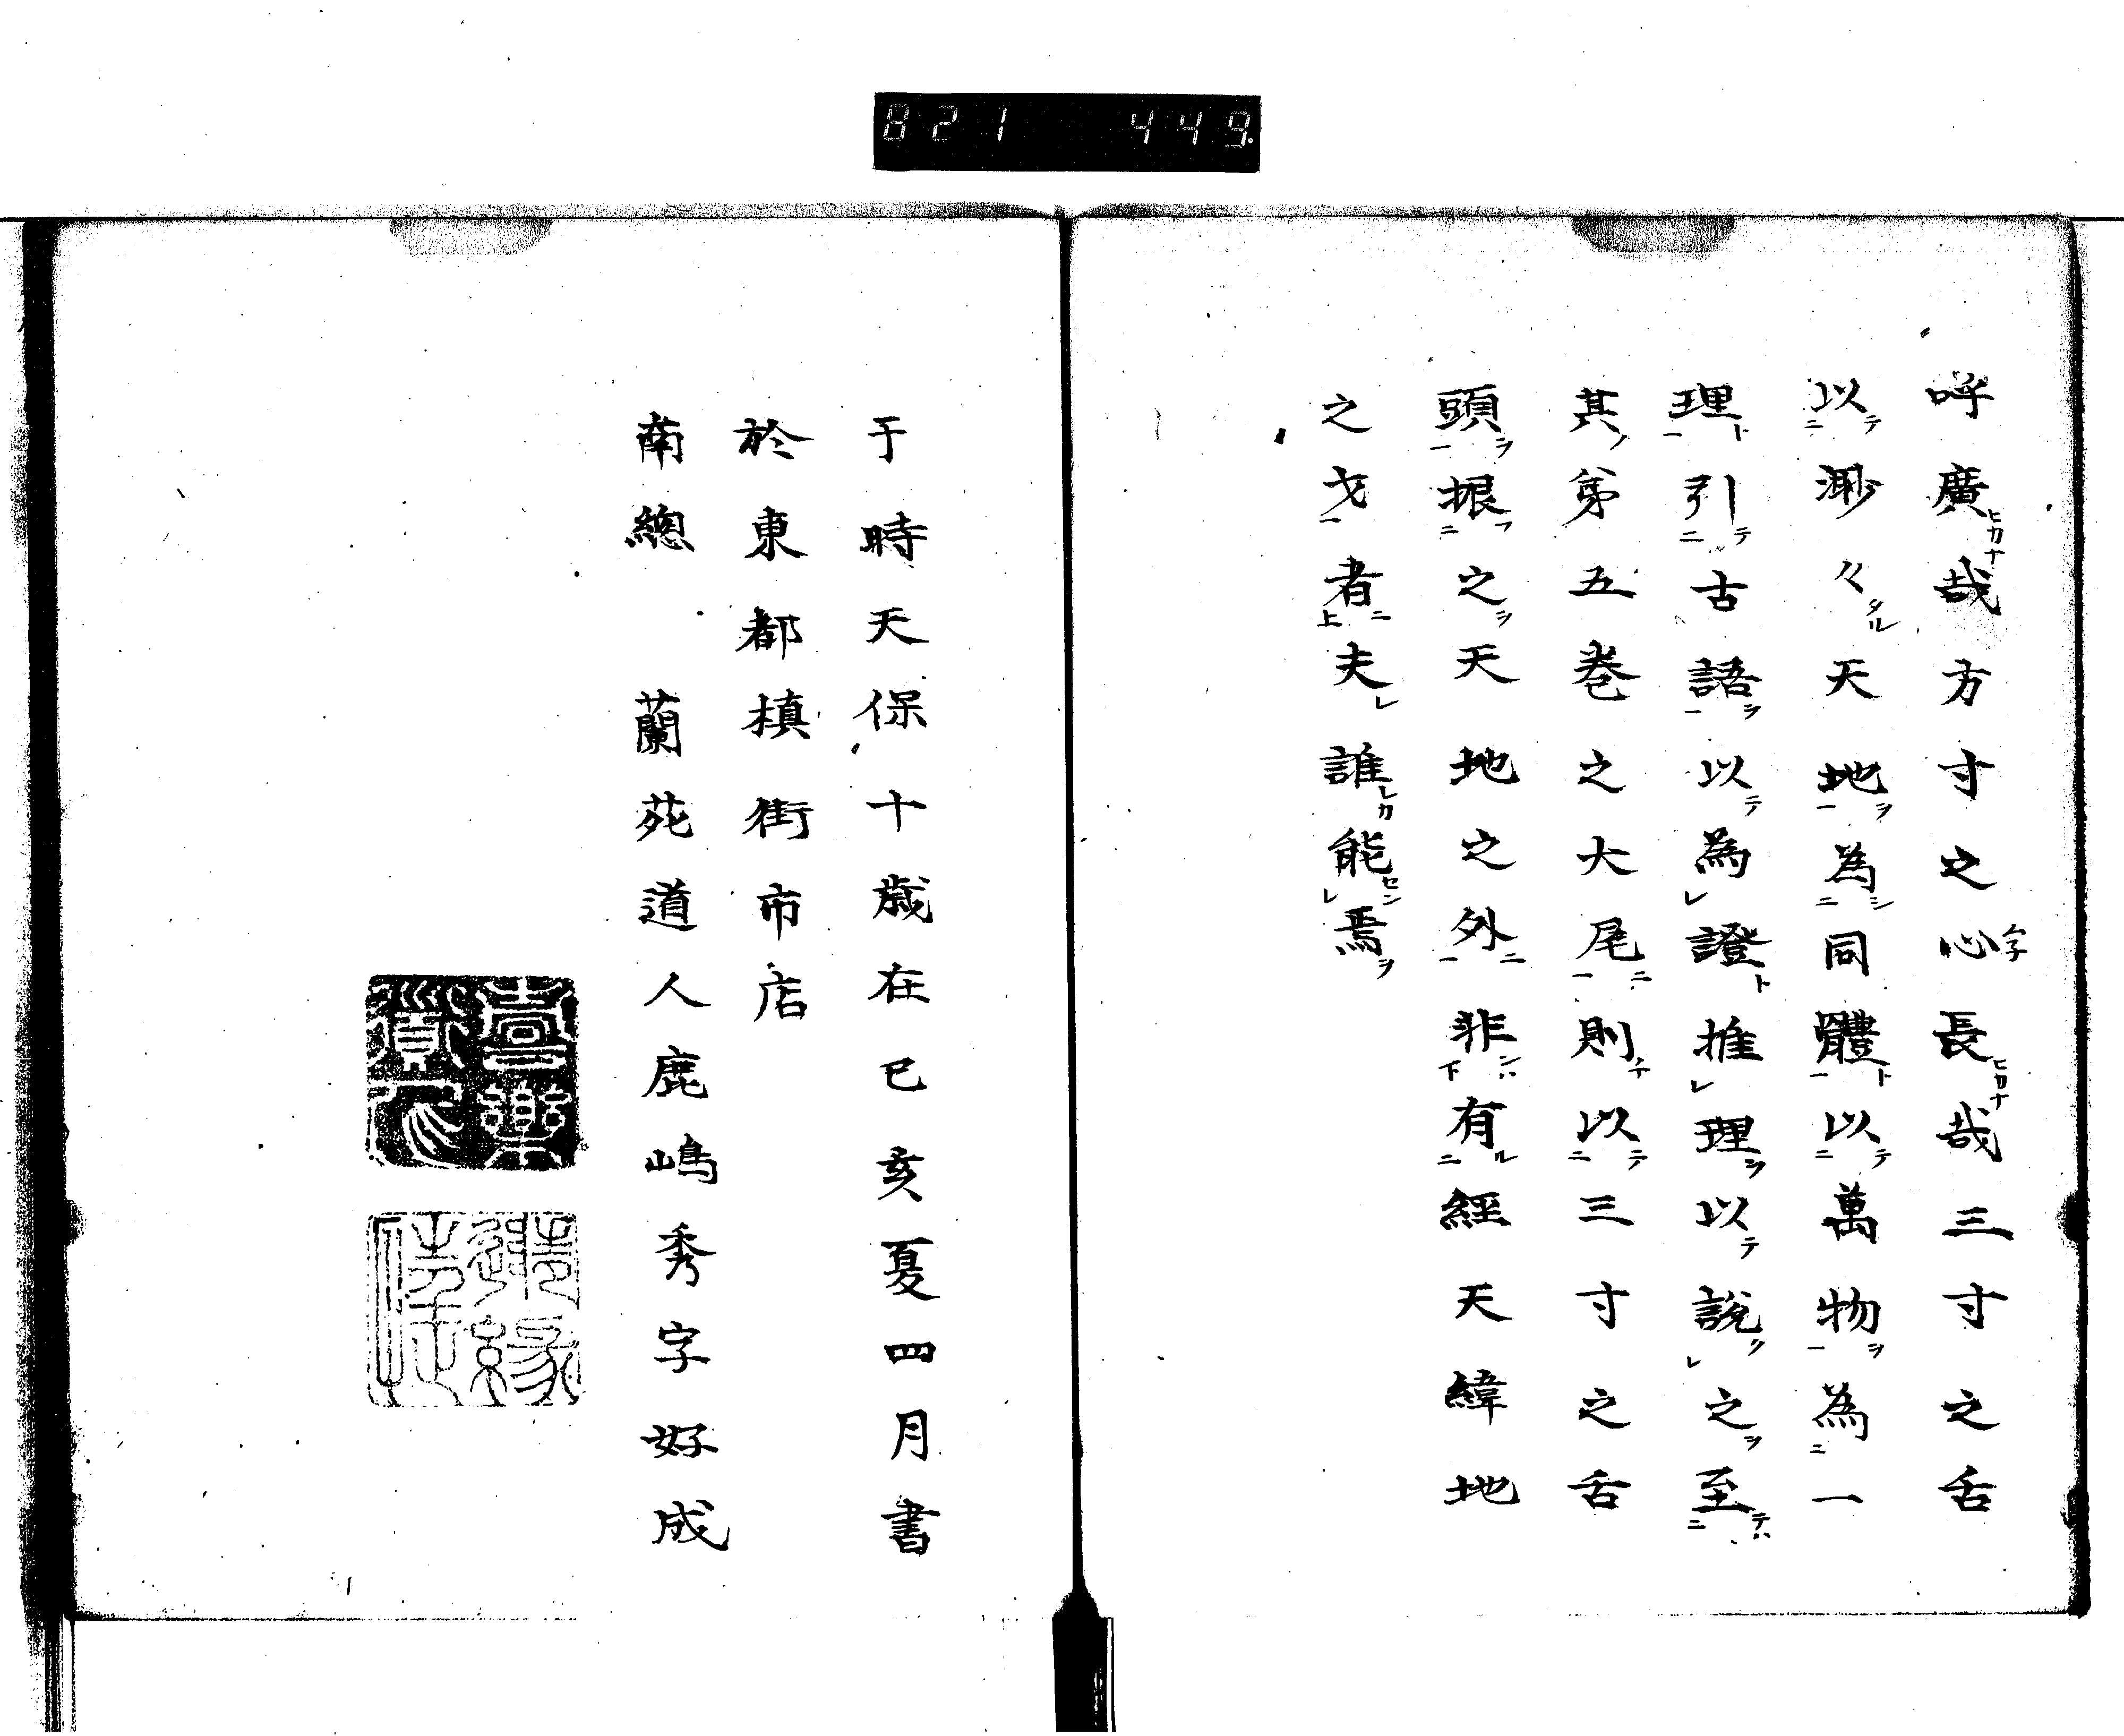 821 449
呼廣哉方寸之心長哉三寸之舌
以渺々天地為同體以萬物為一
理引古語以為證推理以說之至
其第五卷之大尾則以三寸之舌
頭振之天地之外非有經天緯地
之才者夫誰能焉
于時天保十歳在己亥夏四月書
於東都槙街市店
南總　蘭苑道人鹿嶋秀字好成